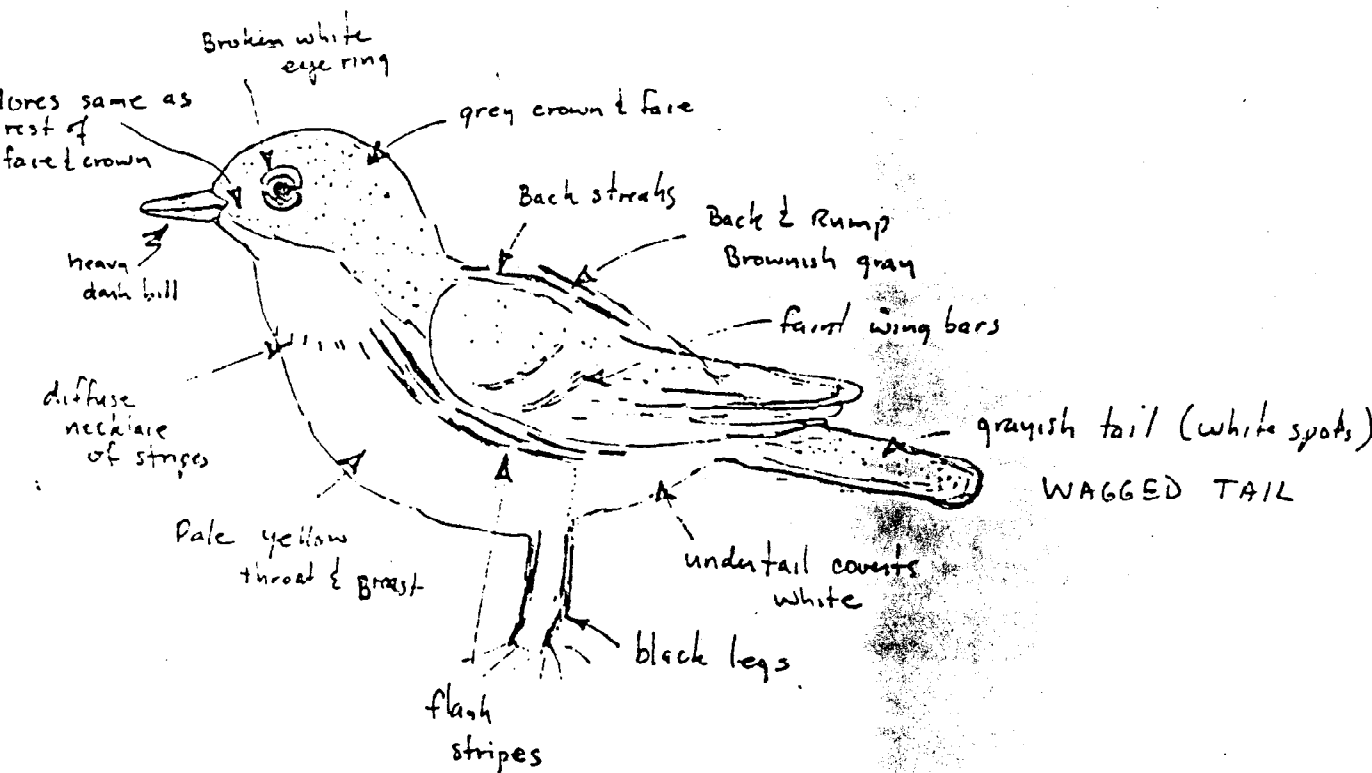 Broken white
eye ring
lores same as
rest of
face & crown
grey crown & face
Back streaks
Back & Rump
Brownish gray
heavy
dark bill
faint wing bars
diffuse
necklace
of stripes
grayish tail (white spots)
WAGGED TAIL
Pale yellow
throat & Breast
undertail coverts
white
black legs
flank
stripes